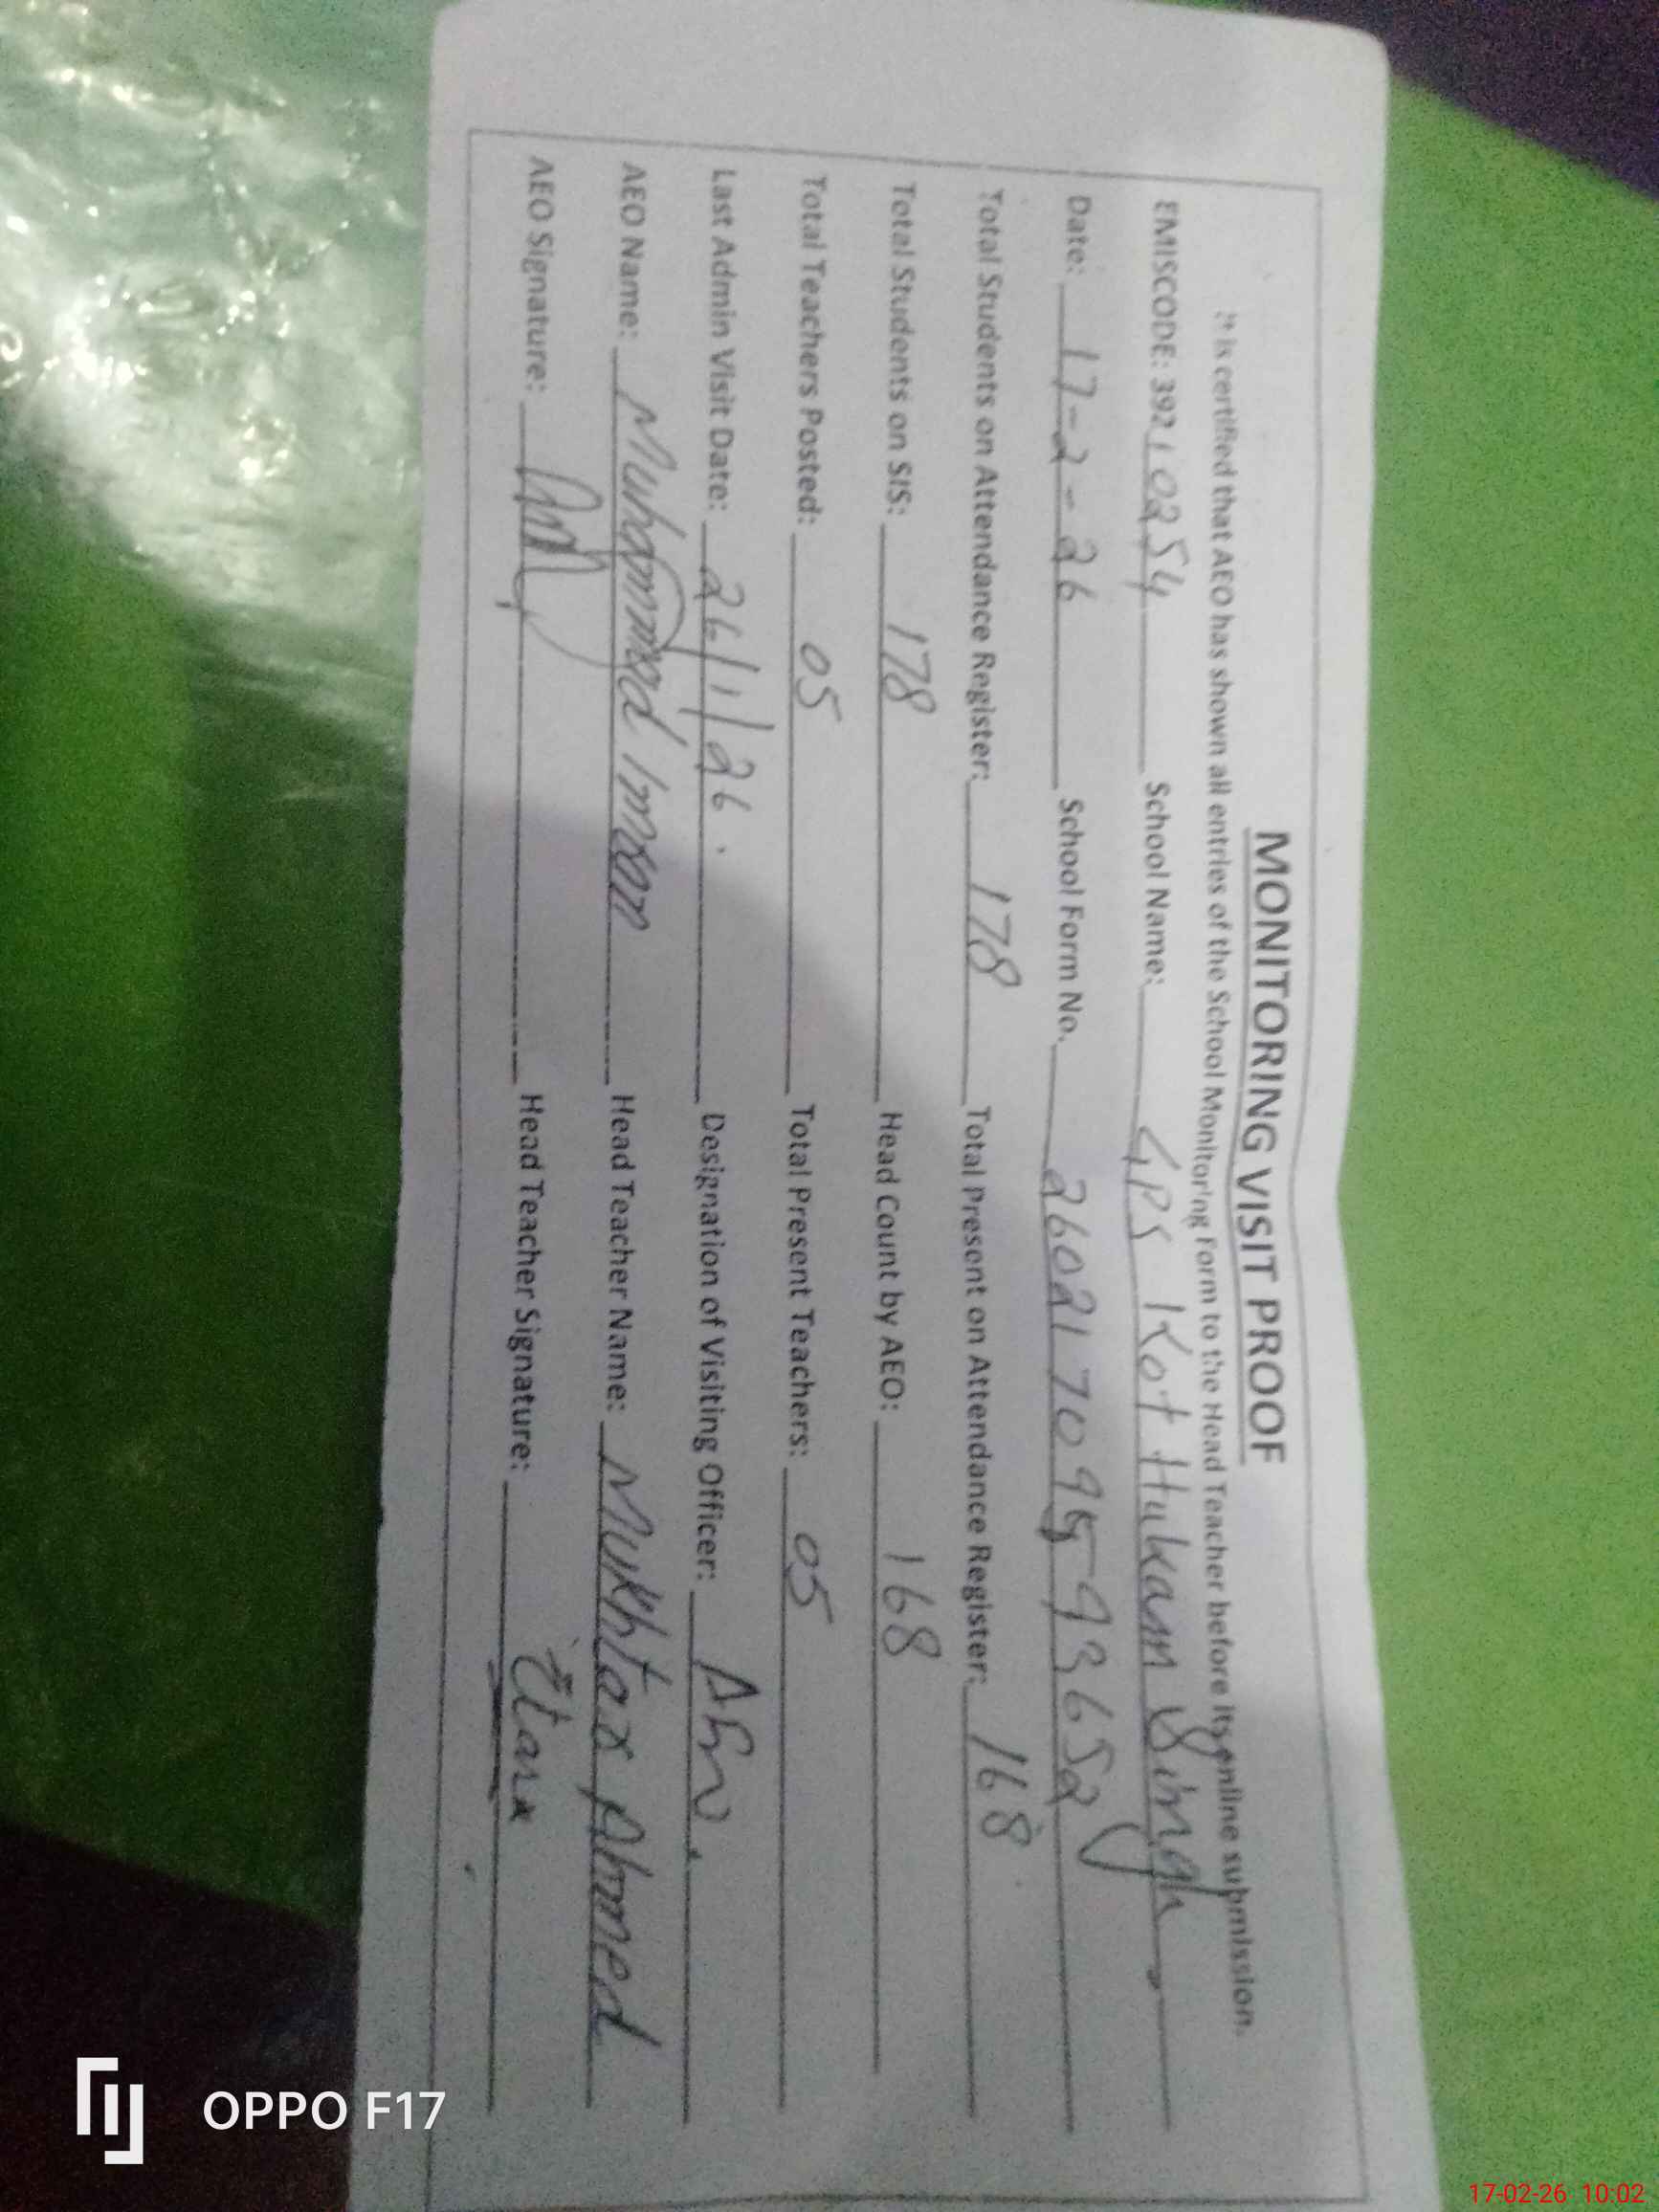 MONITORING VISIT PROOF
It is certified that AEO has shown all entries of the School Monitoring Form to the Head Teacher before its online submission.
EMISCODE: 392 10254 School Name: GPS Kot Hukam Singh
Date: 17-2-26 School Form No. 
Total Students on Attendance Register: 178 Total Present on Attendance Register: 168
Total Students on SIS: 178 Head Count by AEO: 168
Total Teachers Posted: 05 Total Present Teachers: 05
Last Admin Visit Date: 26/1/26. Designation of Visiting Officer:
AEO Name: Muhammed Imran Head Teacher Name: Mukhtar Ahmed
AEO Signature: Head Teacher Signature:
OPPO F17
17-02-26 10:02